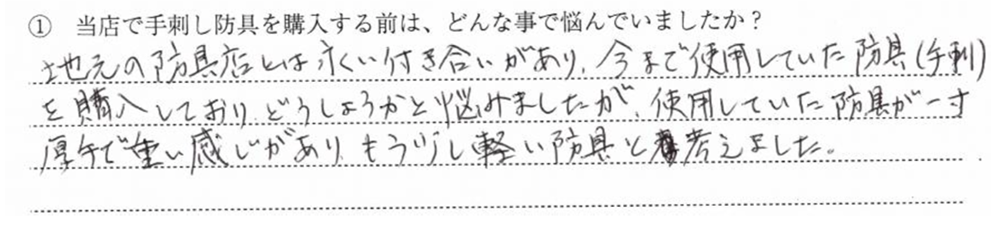 ① 当店で手刺し防具を購入する前は、どんな事で悩んでいましたか?
地元の防具店とは永い付き合いがあり、今まで使用していた防具(手刺)
を購入しており、どうしようかと悩みましたが、使用していた防具が一寸
厚手で重い感じがあり、もう少し軽い防具と考えました。